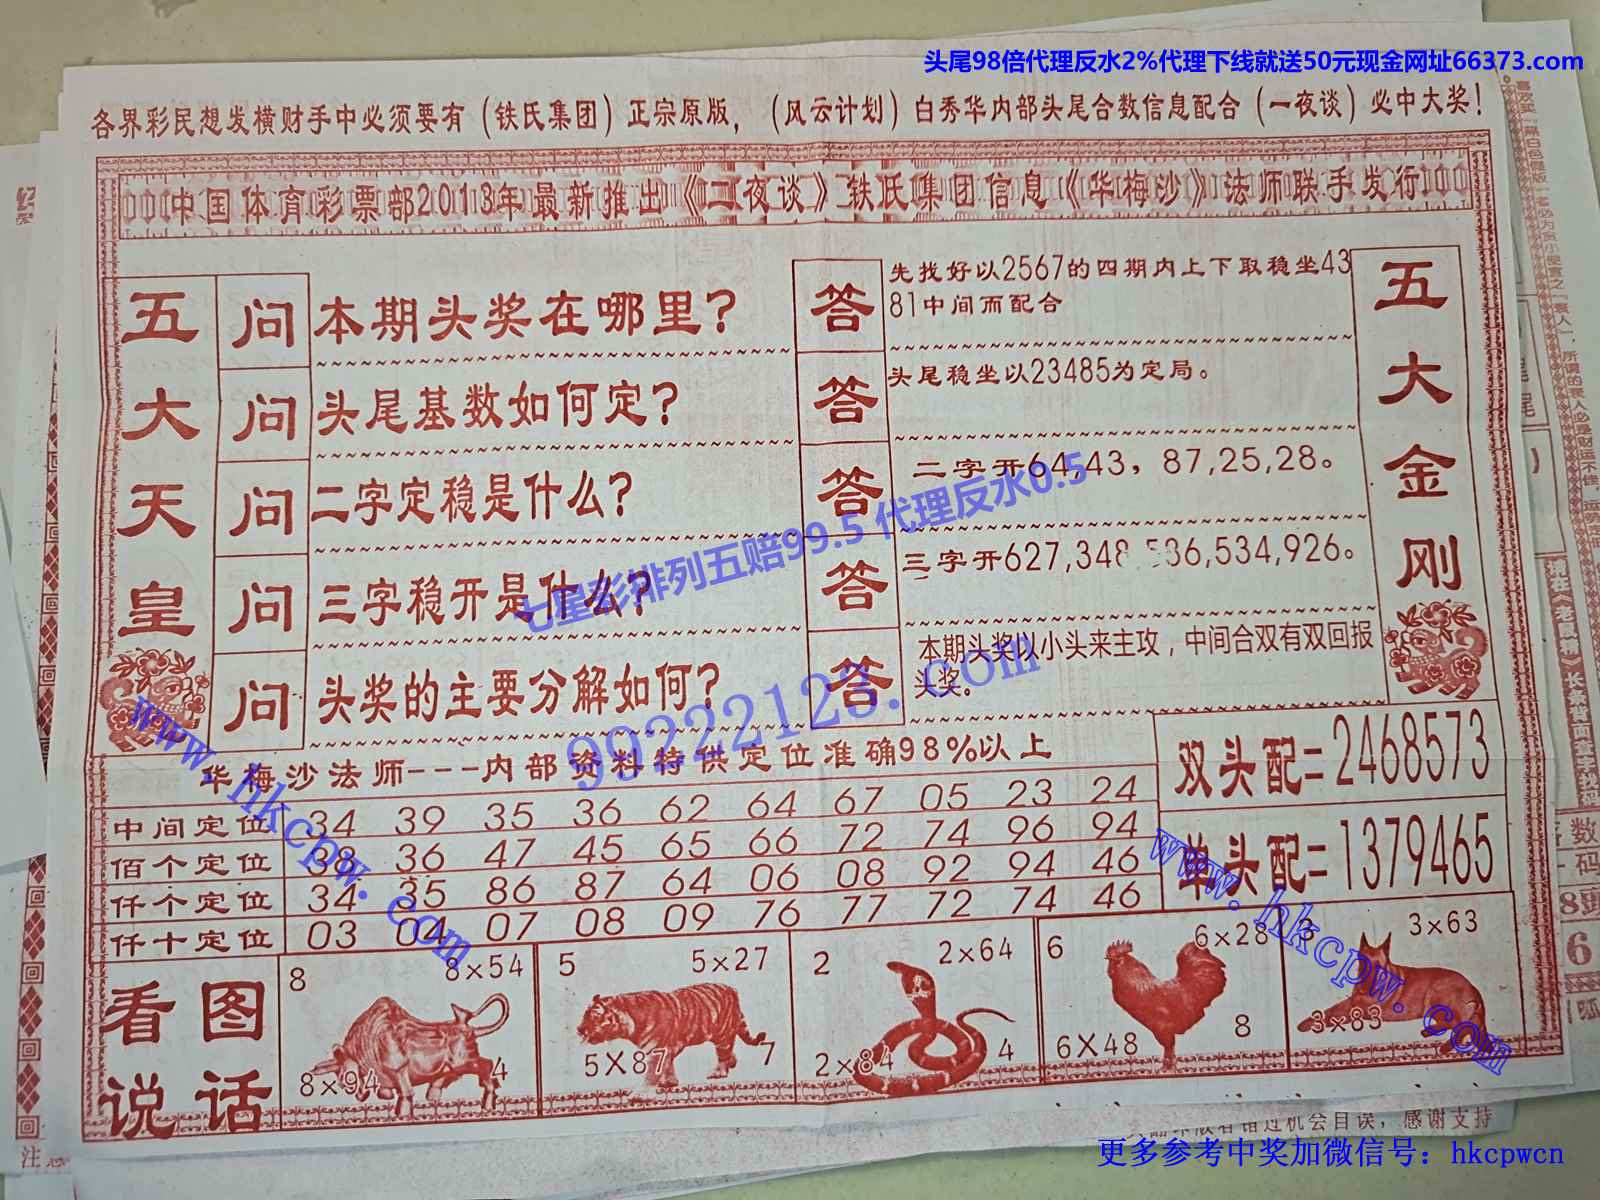 头尾98倍代理反水2%代理下线就送50元现金网址66373.com
各界彩民想发横财手中必须要有（铁氏集团）正宗原版，（风云计划）白秀华内部头尾合数信息配合（一夜谈）必中大奖！
中国体育彩票部2013年最新推出《二夜谈》铁氏集团信息《华梅沙》法师联手发行
五大天皇
问 本期头奖在哪里？
答 先找好以2567的四期内上下取稳坐43
81中间而配合
问 头尾基数如何定？
答 头尾稳坐以23485为定局。
问 二字定稳是什么？
答 二字开64,43，87,25,28。
问 三字稳开是什么？
答 三字开627,348, 36,534,926。
问 头奖的主要分解如何？
答 本期头奖以小头来主攻，中间合双有双回报
头奖。
五大金刚
七星彩排列五赔99.5 代理反水0.5
99222123.com
www.hkcpw.com
www.hkcpw.com
华梅沙法师---内部资料特供定位准确98%以上
中间定位 34 39 35 36 62 64 67 05 23 24
佰个定位 38 36 47 45 65 66 72 74 96 94
仟个定位 34 35 86 87 64 06 08 92 94 46
仟十定位 03 04 07 08 09 76 77 72 74 46
双头配=2468573
单头配=1379465
看图
说话
8 8×54
8×94 4
5 5×27
5×87 7
2 2×64
2×84 4
6 6×28
6×48 8
3 3×63
3×83
错过机会目误，感谢支持
更多参考中奖加微信号：hkcpwcn